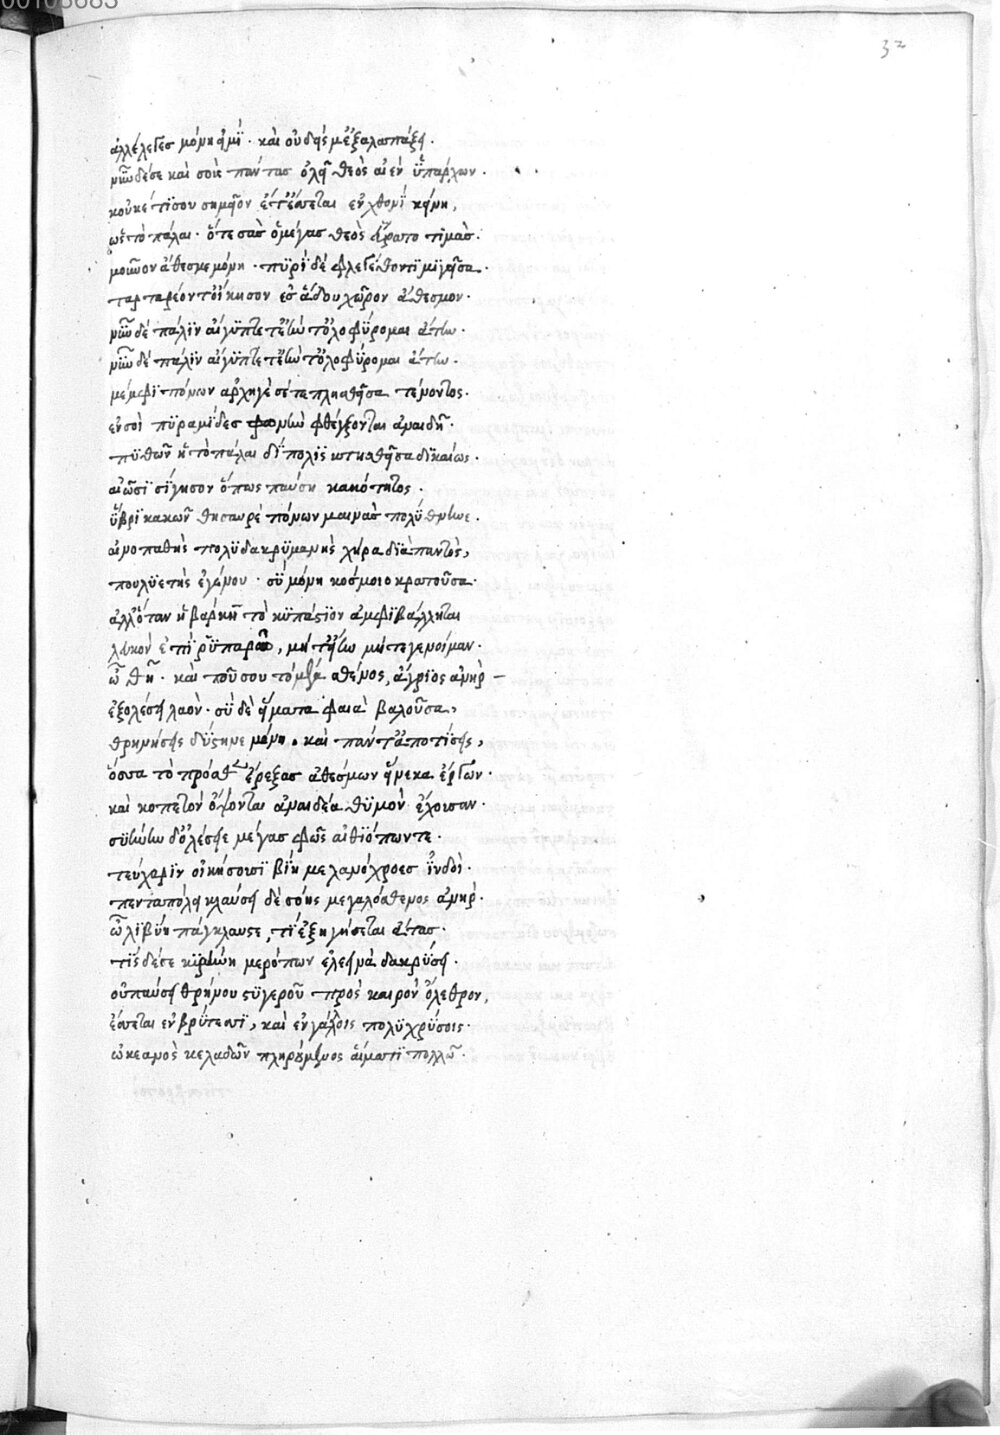 00103683
32
ἀλλ' ἔλεγες μόνη εἰμῒ· καὶ οὐδεὶς μ' ἐξαλαπάξει·
νῦν δέ σε καὶ σοὺς πάντας ὀλεῖ θεὸς αἰὲν ὑπάρχων·
κοὐκέτι σου σημεῖον ἔτ' ἔσσεται ἐν χθονῒ κείνη,
ὡς τὸ πάλαι· ὅτε σὰς ὁ μέγας θεὸς εὕρατο τιμὰς·
μοῦνον ἄθεσμε μόνη· πυρῒ δὲ φλεγέθοντι μιγεῖσα·
ταρταρέον τ' οἴκησον ἐς ἅδου χῶρον ἄθεσμον·
νῦν δὲ πάλιν αἴγυπτε τεὴν τ' ὀλοφύρομαι ἄτην·
νῦν δὲ πάλιν αἴγυπτε τεὴν τ' ὀλοφύρομαι ἄτην·
μέμφι πόνων ἀρχηγὲ σύ τε πληθεῖσα τένοντος·
ἐν σοὶ πυραμίδες φωνὴν φθέγξονται ἀναιδῆ·
πυθῶν ἡ τὸ πάλαι δίπολις κληθεῖσα δικαίως·
αἰῶσι σίγησον ὅπως παύση κακότητος·
ὕβρι κακῶν θησαυρὲ πόνων μαινὰς πολύθρηνε·
αἰνοπαθὴς πολυδακρυμανὴς χήρα διαπαντὸς,
πουλυετὴς ἐγένου· σὺ μόνη κόσμοιο κρατοῦσα·
ἀλλ' ὅταν ἡ βάρκη τὸ κυπάσιον ἀμφιβάλληται
λευκὸν ἐπὶ ῥυπαρῶ, μήτ' εἴην μήτε γενοίμαν·
ὦ θῆ· καὶ ποῦ σου τὸ μέγα σθένος, ἄγριος ἀνὴρ
ἐξολέσει λαὸν· σὺ δὲ εἵματα φαιὰ βαλοῦσα,
θρηνήσεις δύστηνε μόνη· καὶ πάντ' ἀποτίσεις,
ὅσσα τὸ πρόσθεν ἔρεξας ἀθέσμων εἵνεκα ἔργων·
καὶ κοπετὸν ὄψονται ἀναιδέα θυμὸν ἔχοισαν·
συήνην δ' ὀλέσειε μέγας φὼς αἰθιόπων τε·
τεύχαριν οἰκήσουσι βίη μελανόχροες ἰνδοὶ·
πεντάπολι κλαύσει δὲ σ' ὅης μεγαλόσθενος ἀνὴρ·
ὦ λιβύη πάγκλαυσε, τί ἐξηγήσεται ἄτας·
τίς δέ σε κιρήνη μερόπων ἐλεεινὰ δακρύσει·
οὐ παύσει θρήνου στυγεροῦ πρὸς καιρὸν ὄλεθρον,
ἔσσεται ἐν βρύτεσσι, καὶ ἐν γάλλοις πολυχρύσοις·
ὠκεανὸς κελαδῶν πληρούμενος αἵματι πολλῶ·